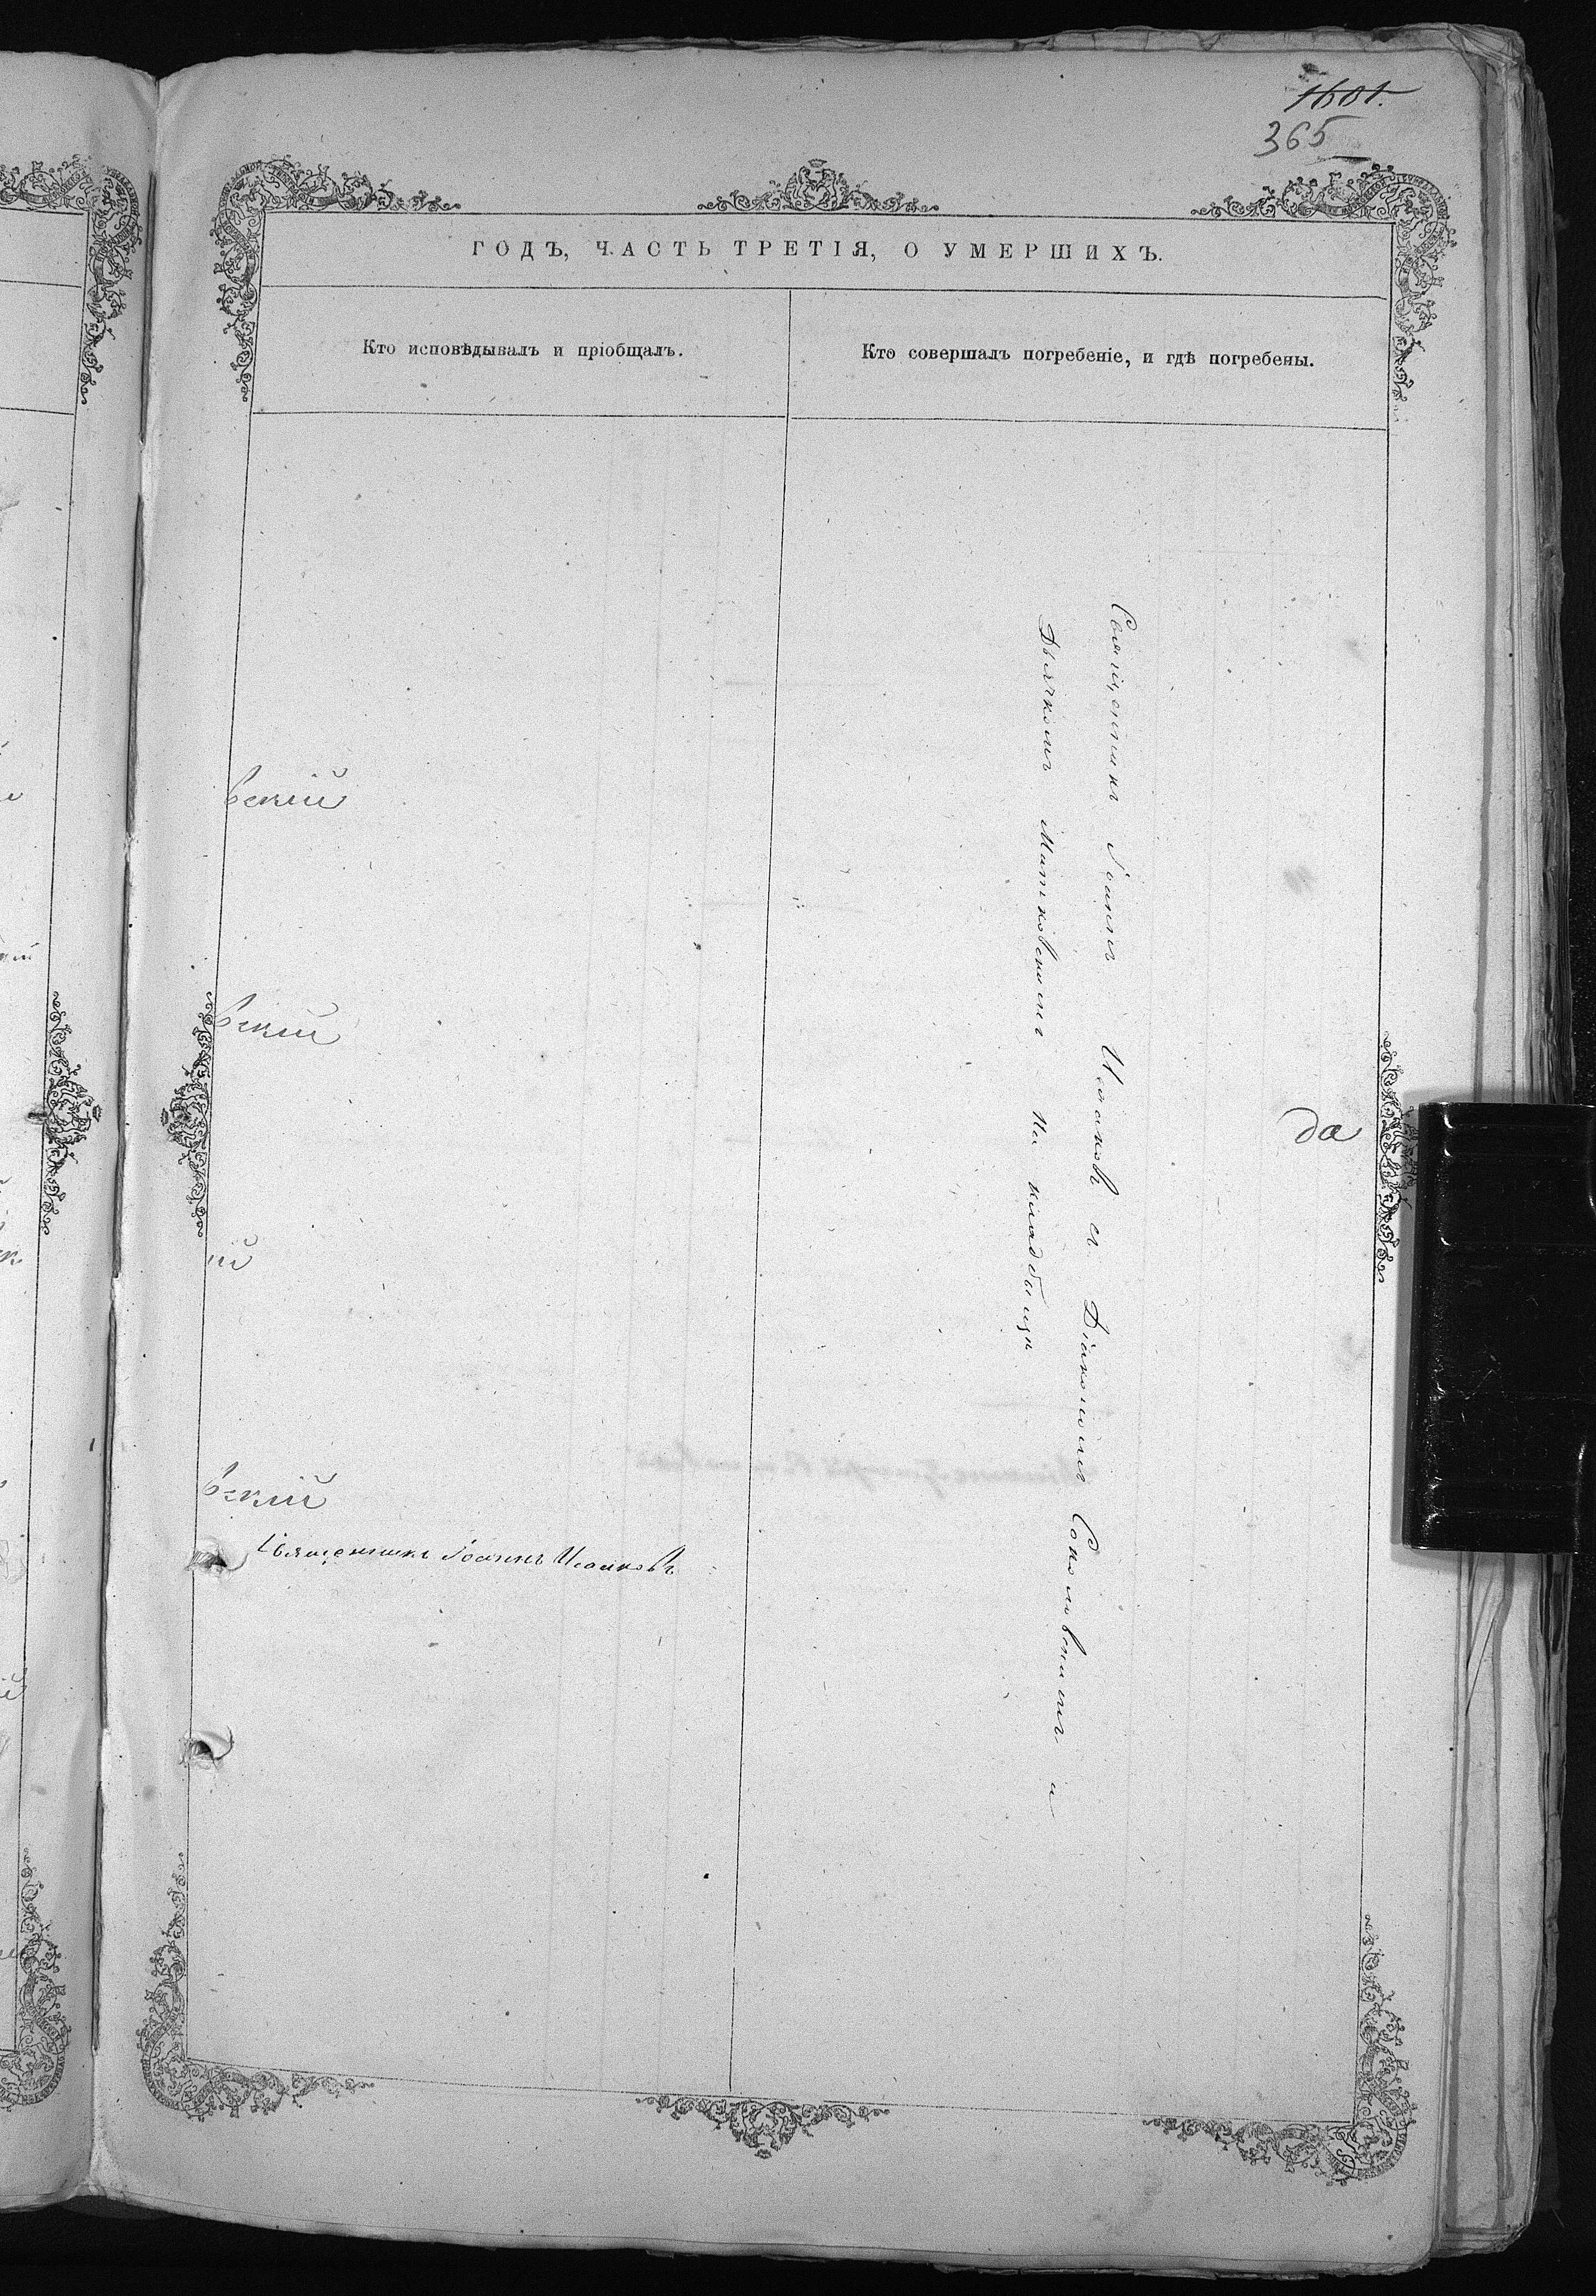 1601.
365
ГОДЪ, ЧАСТЬ ТРЕТІЯ, О УМЕРШИХЪ.
Кто исповѣдывалъ и пріобщалъ.
Кто совершалъ погребеніе, и гдѣ погребены.
вскій
вскій
ій
вскій
Священникъ Іоаннъ Исаковъ
Священникъ Іоаннъ Исаковъ съ Діакономъ Соколовскимъ и
Дьячкомъ Митковскимъ На кладбищѣ
да